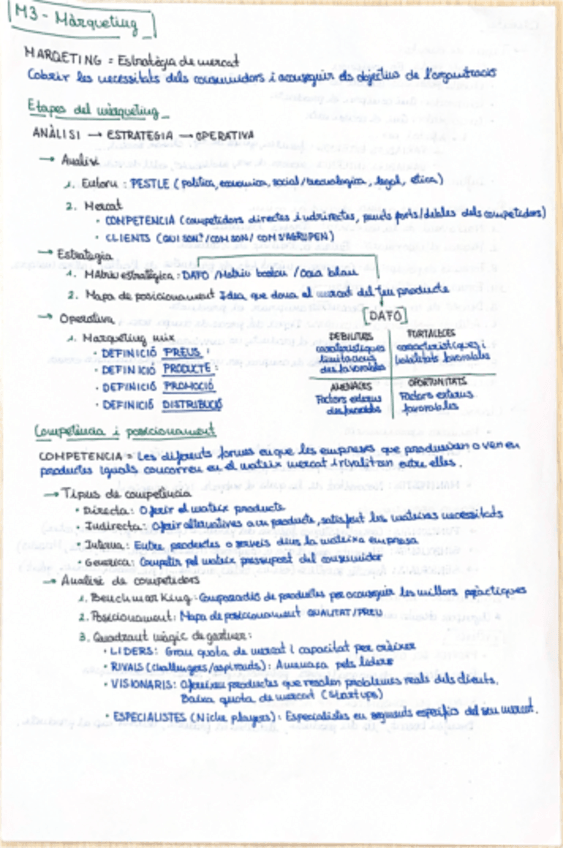 M3 - Màrqueting
MARQETING = Estratègia de mercat
Cobrir les necessitats dels consumidors i aconseguir els objectius de l'organització
Etapes del màrqueting
ANÀLISI → ESTRATEGIA → OPERATIVA
→ Analisi
1. Entorn : PESTLE (politica, economica, social/tecnologica, legal, etica)
2. Mercat
• COMPETENCIA (competidors directes i indirectes, punts forts/debles dels competidors)
• CLIENTS (QUI SON?/COM SON/COM S'AGRUPEN)
→ Estrategia
1. Matriu estratègica : DAFO / Matriu boston / Ocea blau
2. Mapa de posicionament Idea que dona el mercat del teu producte
→ Operativa
1. Marqueting mix
• DEFINICIÓ PREUS
• DEFINICIÓ PRODUCTE
• DEFINICIÓ PROMOCIÓ
• DEFINICIÓ DISTRIBUCIÓ
[DAFO]
DEBILITATS
característiques limitacions desfavorables
FORTALECES
característiques i habilitats favorables
AMENACES
Factors externs desfavorables
OPORTUNITATS
Factors externs favorables
Competència i posicionament
COMPETENCIA = Les diferents formes en que les empreses que produeixen o venen
productes iguals concorren en el mateix mercat i rivalitzen entre elles.
→ Tipus de competència
• Directa : Oferir el mateix producte
• Indirecta : Oferir alternatives a un producte, satisfent les mateixes necessitats
• Interna : Entre productes o serveis dins la mateixa empresa
• Generica : Competir pel mateix pressupost del consumidor
→ Analisi de competidors
1. Benchmarking : Comparació de productes per aconseguir les millors pràctiques
2. Posicionament : Mapa de posicionament QUALITAT/PREU
3. Quadrant màgic de gartner :
• LIDERS : Gran quota de mercat i capacitat per créixer
• RIVALS (challengers/aspirants) : Amenaça pels líders
• VISIONARIS : Ofereixen productes que resolen problemes reals dels clients,
Baixa quota de mercat (Startups)
• ESPECIALISTES (Niche players) : Especialistes en segments especifics del seu mercat.